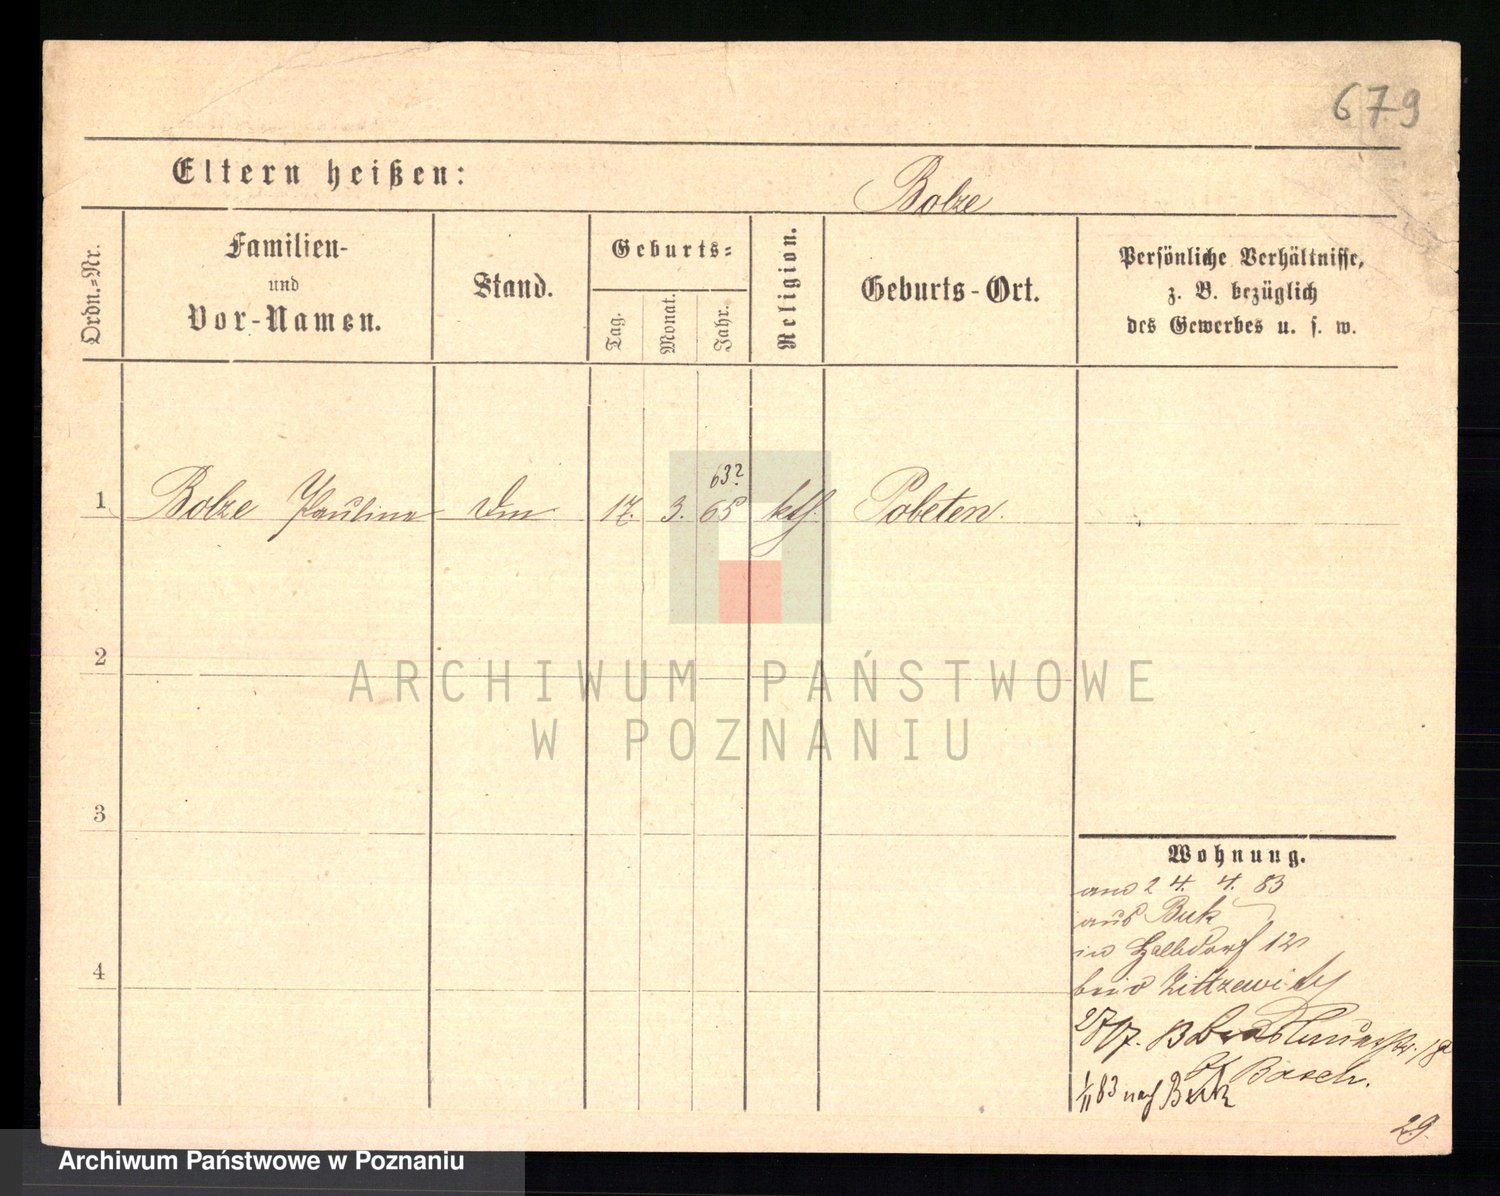 679
Eltern heißen: Bolze
Ordn.=Nr.
Familien-
und
Vor-Namen.
Stand.
Geburts=
Tag.
Monat.
Jahr.
Religion.
Geburts-Ort.
Persönliche Verhältnisse,
z. B. bezüglich
des Gewerbes u. s. w.
63?
1 Bolze Paulina 17. 3. 65 kth. Pobeten
2
3
4
ARCHIWUM PAŃSTWOWE
W POZNANIU
Wohnung.
24. 4. 83
aus Buk
in Halbdorf 12
bei
27/7. 83
Basch.
1/11 83 nach Buk
29.
Archiwum Państwowe w Poznaniu